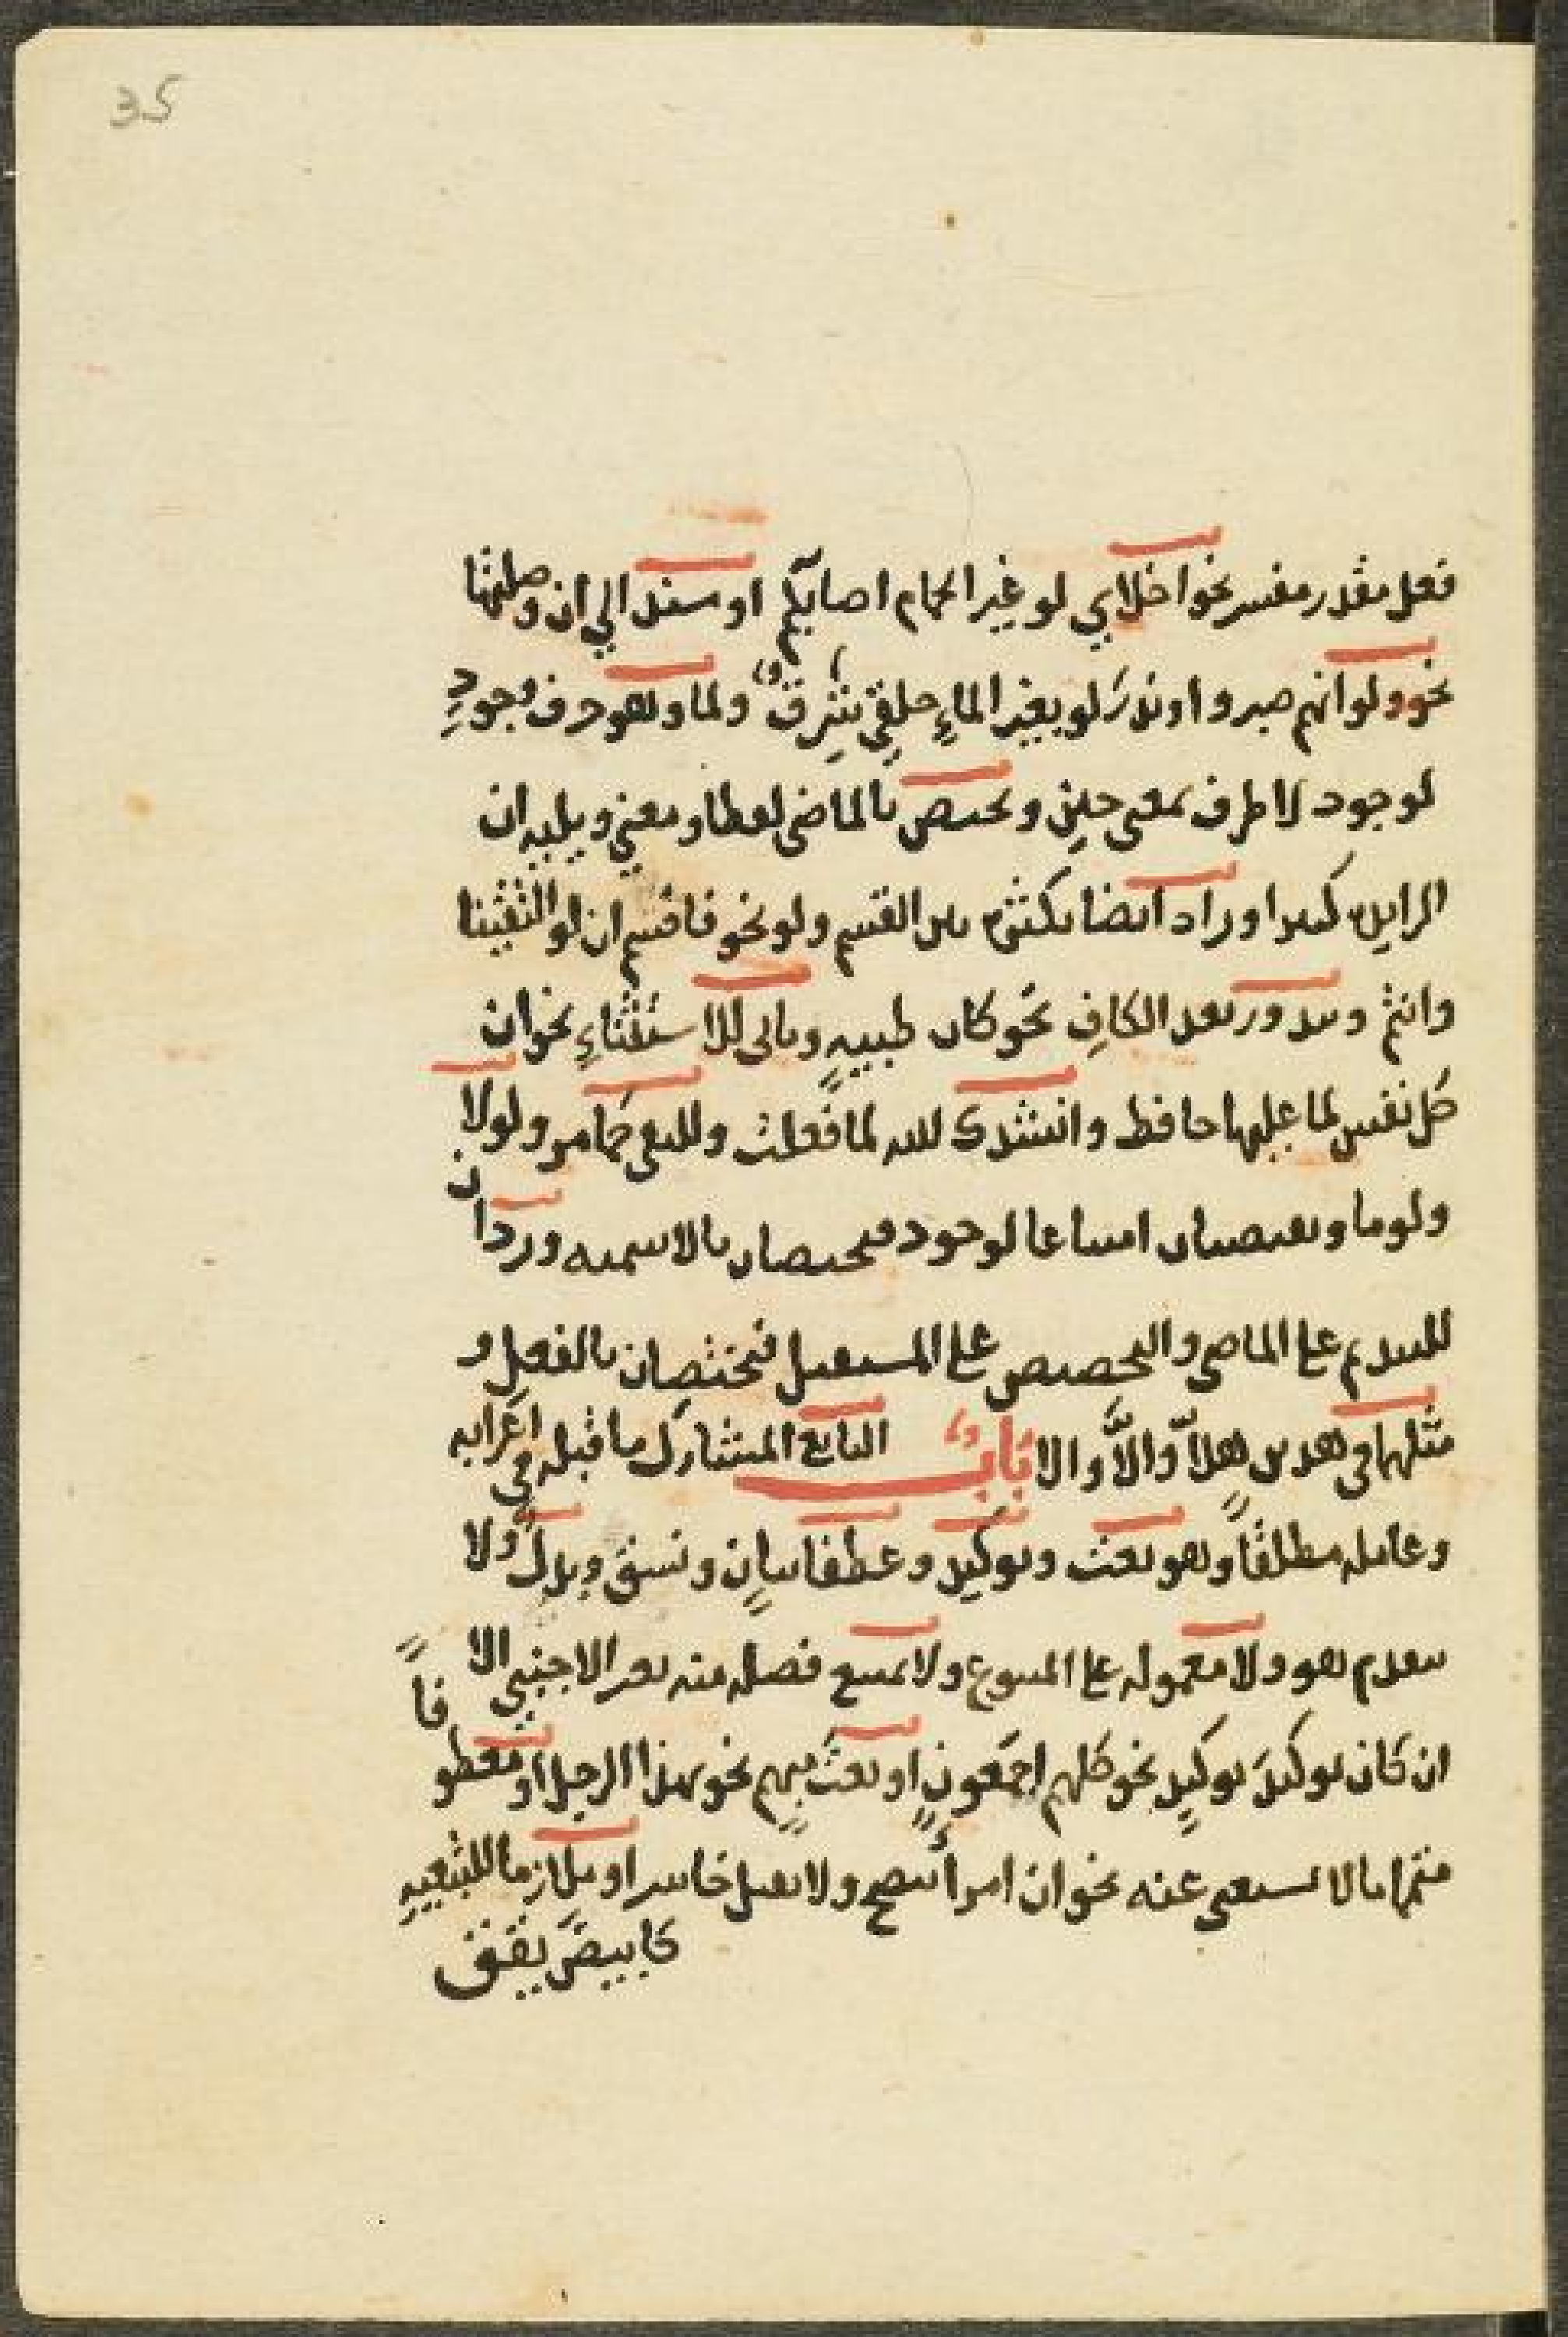 35
فعل مقدر مفسر نحو اخلاي لو غير الحمام اصابكم او مسند الي ان وصلتها
نحو ولو انهم صبروا وندر لو بغير الماءِ حلقي شرقٌ ولما وهو حرف وجودِ
لوجود لا ظرف بمعنى حين ويختص بالماضي لفظا ومعني ويليه ان
الزايده كثيرا وزاد ايضا بكثرة بين القسم ولو نحو فاقسم ان لو التقينا
وانتم وبندور بعد الكافِ نحو كان ظبيةٍ وياتى للاستثناءِ نحو ان
كل نفس لما عليها حافظ وانشدك الله لما فعلت وللنفى كما مر ولولا
ولوما ويقتضيان امتناعا لوجود فيختصان بالاسميه ويردان
للتنديم علي الماضي والتحضيض علي المستقبل فيختصان بالفعل و
مثلهما في هذين هلّا وألّا والا بابٌ التابع المشارك ما قبله في اعرابه
وعامله مطلقًا وهو نعت وتوكيد وعطفا بيانٍ ونسق وبدلٌ ولا
يتقدم هو ولا معموله علي المتبوع ولا يمتنع فصله منه بغير الاجنبي الا
ان كان توكيدَ توكيدٍ نحو كلهم اجمعون او نعتَ مبهم نحو بهذا الرجل او معطوفاً
متمما ما لا يستغنى عنه نحو ان امرأً ينصح ولا يقبل خاسر او ملازما للتبعيه
كابيضَ يقق